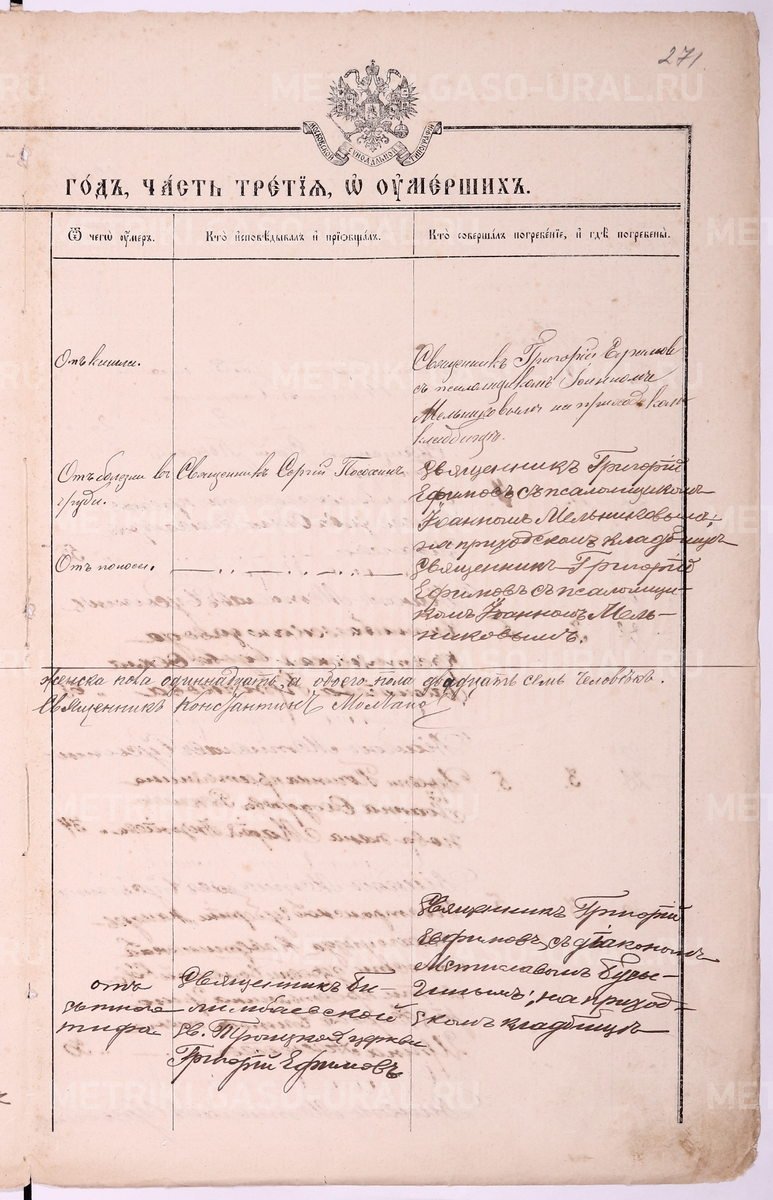 271
МОСКОВСКОЙ СѴНОДАЛЬНОЙ ТИПОГРАФІИ
ГО́ДЪ, ЧА́СТЬ ТРЕ́ТІѦ, Ѡ ОУ҆МЕ́РШИХЪ.
Ѿ чегѡ̀ оу҆́меръ.
Кто̀ и҆сповѣ́дывалъ и҆ приѻбща́лъ.
Кто̀ соверша́лъ погребе́нїе, и҆ гдѣ̀ погребены̀.
Отъ
Священникъ Григорій Ефимов
съ псаломщикомъ Іоанномъ
Мельниковымъ на приходском
кладбищѣ.
Отъ болезни въ
груди.
Священникъ Сергій
Священникъ Григорій
Ефимовъ съ псаломщикомъ
Іоанномъ Мельниковымъ,
на приходскомъ кладбищѣ
Отъ поноса.
Священникъ Григорій
Ефимовъ съ псаломщи-
комъ Іоанномъ Мель-
никовымъ.
женска пола одиннадцать а обоего пола двадцать семь человѣкъ.
Священникъ Константинъ
отъ
сыпного
тифа
Священникъ Би-
лимбаевской
Св. Троицкой церкви
Григорій Ефимовъ
Священникъ Григорій
Ефимовъ съ діакономъ
Мстиславомъ
на приход-
скомъ кладбищѣ
METRIKI.GASO-URAL.RU